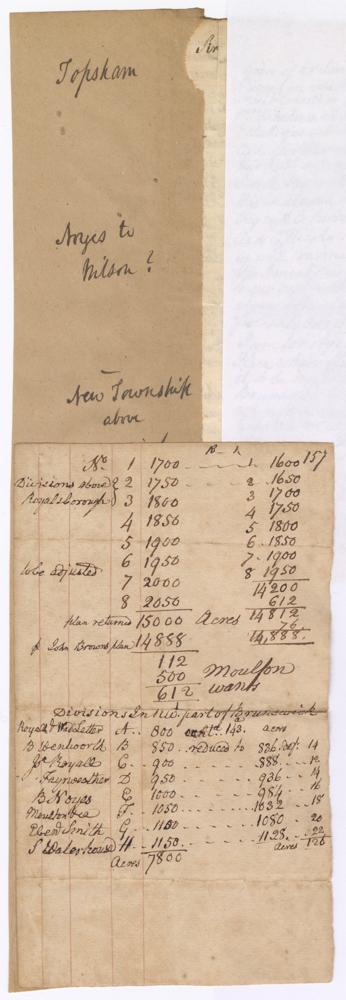 Topsham
Noyes to
Wilson?
New Township
above
157
No. 1 1700 1. 1600
Divisions above 2 1750 2. 1650
Royalsborough 3 1800 3 1700
4 1850 4 1750
5 1900 5 1800
6 1950 6. 1850
to be adjusted 7 2000 7. 1900
8 2050 8 1950
14200
612
plan returned 15000 Acres 14812
76
John Browns plan 14888 14,888.
112
500 Moulson
612 wants
Divisions in part of Brunswick
A.. 800 143. acres
B Wentworth B 850.. reduced to 836. 14
Royall C.. 900 888.. 12
Fayrweather D 950 936.. 14
B Noyes E 1000 984.. 16
Moulton F. 1050 1032.. 18
Eben Smith G. 1100 1080.. 20
S Waterhouse H. 1150 1128... 22
Acres 7800 acres 126